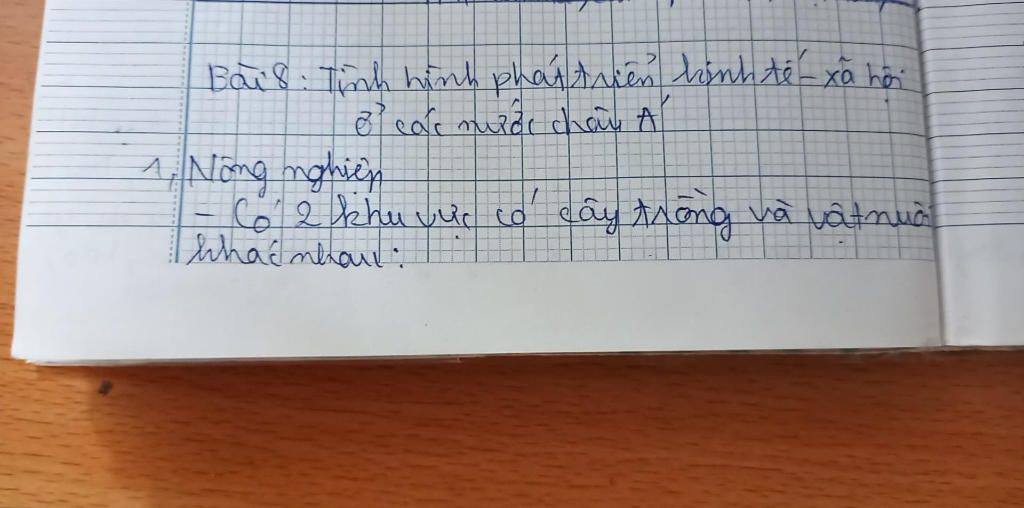 Bài 8: Tình hình phát triển kinh tế - xã hội
ở các nước châu Á
1, Nông nghiệp
- Có 2 khu vực có cây trồng và vật nuôi
khác nhau: